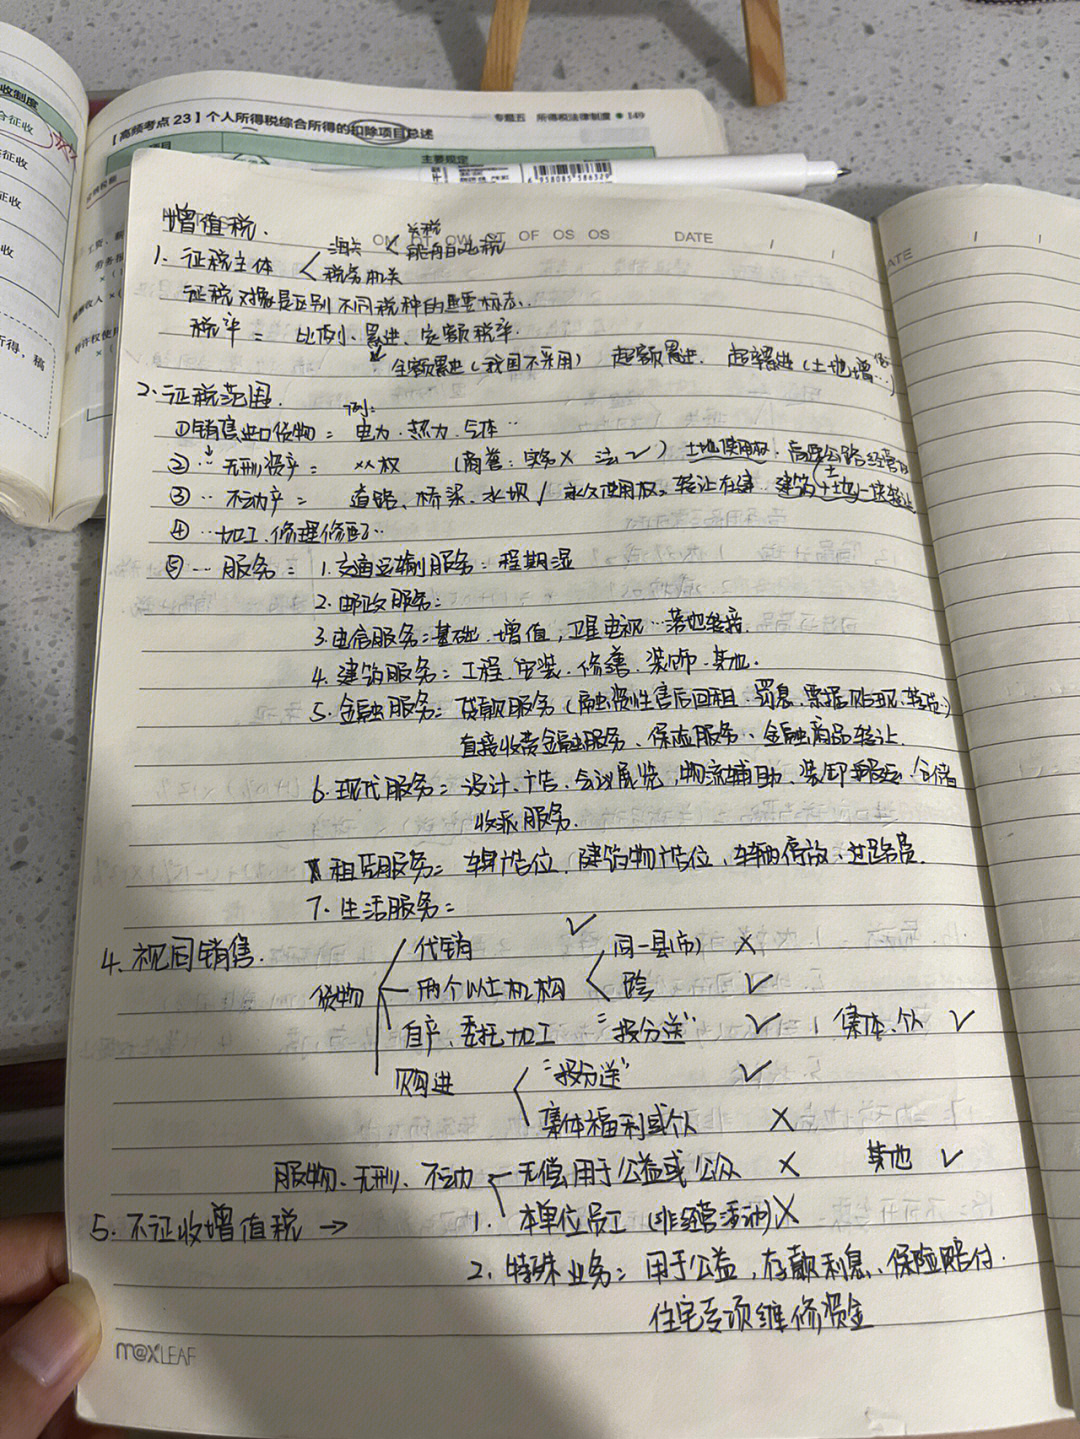 收制度
合征收
征收
征收
收
所得，稿
【高频考点 23】个人所得税综合所得的扣除项目总述
专题五 所得税法律制度 ● 149
项目
主要规定
6 958085 386329
增值税.
MO TU WE TH FR SA SU
DATE
DATE
1. 征税主体 < 海关 < 关税
税务机关
征税对象是区别不同税种的重要标志.
税率 = 比例、累进、定额税率.
全额累进(我国不采用) 超额累进. 超率累进(土地增值…)
2. 征税范围.
例:
①销售进口货物 = 电力.热力.气体…
②… 无形资产 = XX权 (商誉: 实务× 法✓) 土地使用权. 高速公路经营权
③… 不动产 = 道路、桥梁、水坝 / 永久使用权。转让在建 建筑+土地一块转让
④…加工.修理修配…
⑤… 服务: 1.交通运输服务: 程期湿
2.邮政服务:
3.电信服务:基础.增值,卫星电视…落地转接.
4.建筑服务:工程.安装.修缮.装饰.其他.
5.金融服务: 贷款服务(融资性售后回租.罚息.票据贴现、转贷…)
直接收费金融服务、保险服务、金融商品转让.
6.现代服务: 设计.广告.会议展览,物流辅助、装卸搬运.仓储
收派服务.
租赁服务: 车身广告位、建筑物广告位、车辆停放、过路费.
7.生活服务:
4.视同销售.
货物 代销 ✓
两个以上机构 < 同一县(市) ×
跨 ✓
自产、委托加工 "投分送" ✓ 集体.个人 ✓
购进 < "投分送" ✓
集体福利或个人 ×
服务、无形、不动 无偿用于公益或公众 × 其他 ✓
5.不征收增值税 → 1. 本单位员工(非经营活动)×
2. 特殊业务: 用于公益,存款利息、保险赔付.
住宅专项维修资金
m@x LEAF